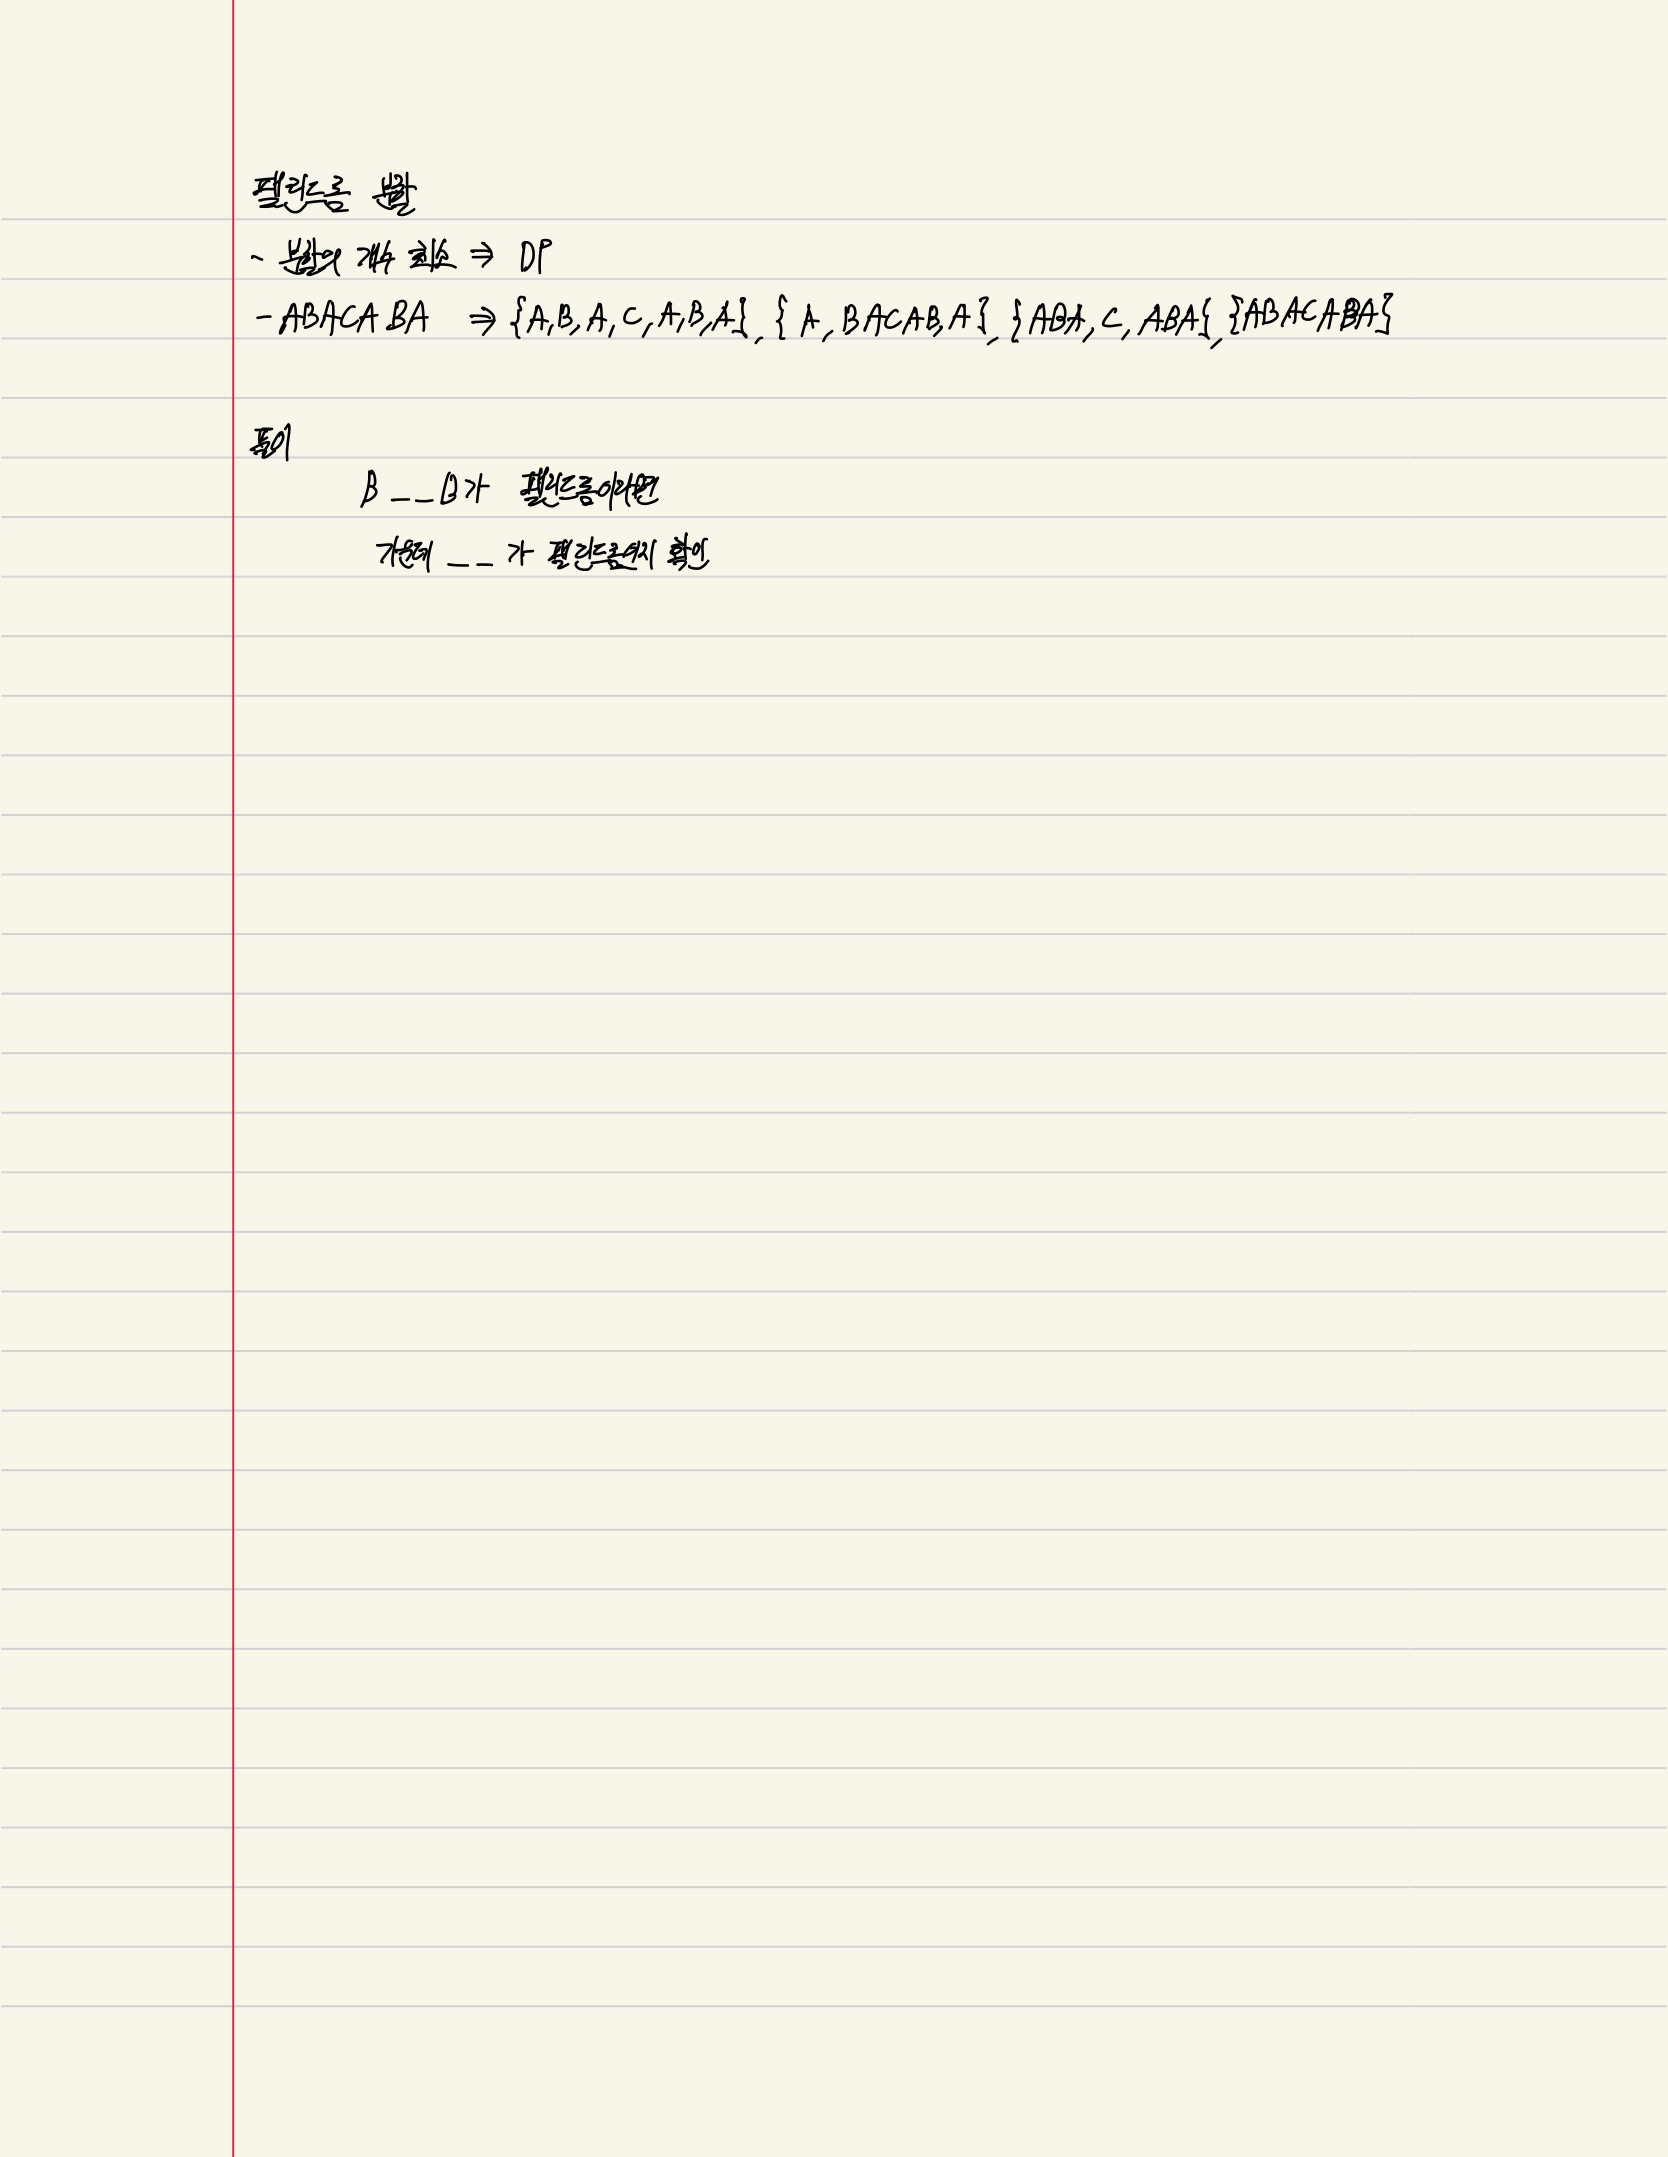 팰린드롬 분할
- 분할의 개수 최소 ⇒ DP
- ABACABA ⇒ {A,B,A,C,A,B,A}, {A,BACAB,A}, {ABA,C,ABA}, {ABACABA}
풀이
B _ _ B가 팰린드롬이라면
가운데 _ _ 가 팰린드롬인지 확인